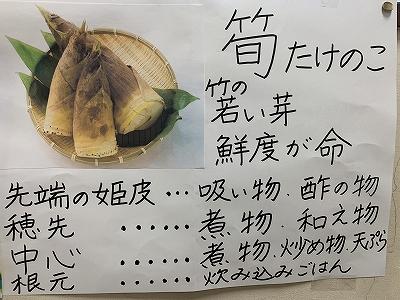 筍 たけのこ
竹の
若い芽
鮮度が命
先端の姫皮…吸い物、酢の物
穂先……煮物、和え物
中心……煮物、炒め物、天ぷら
根元……炊み込みごはん